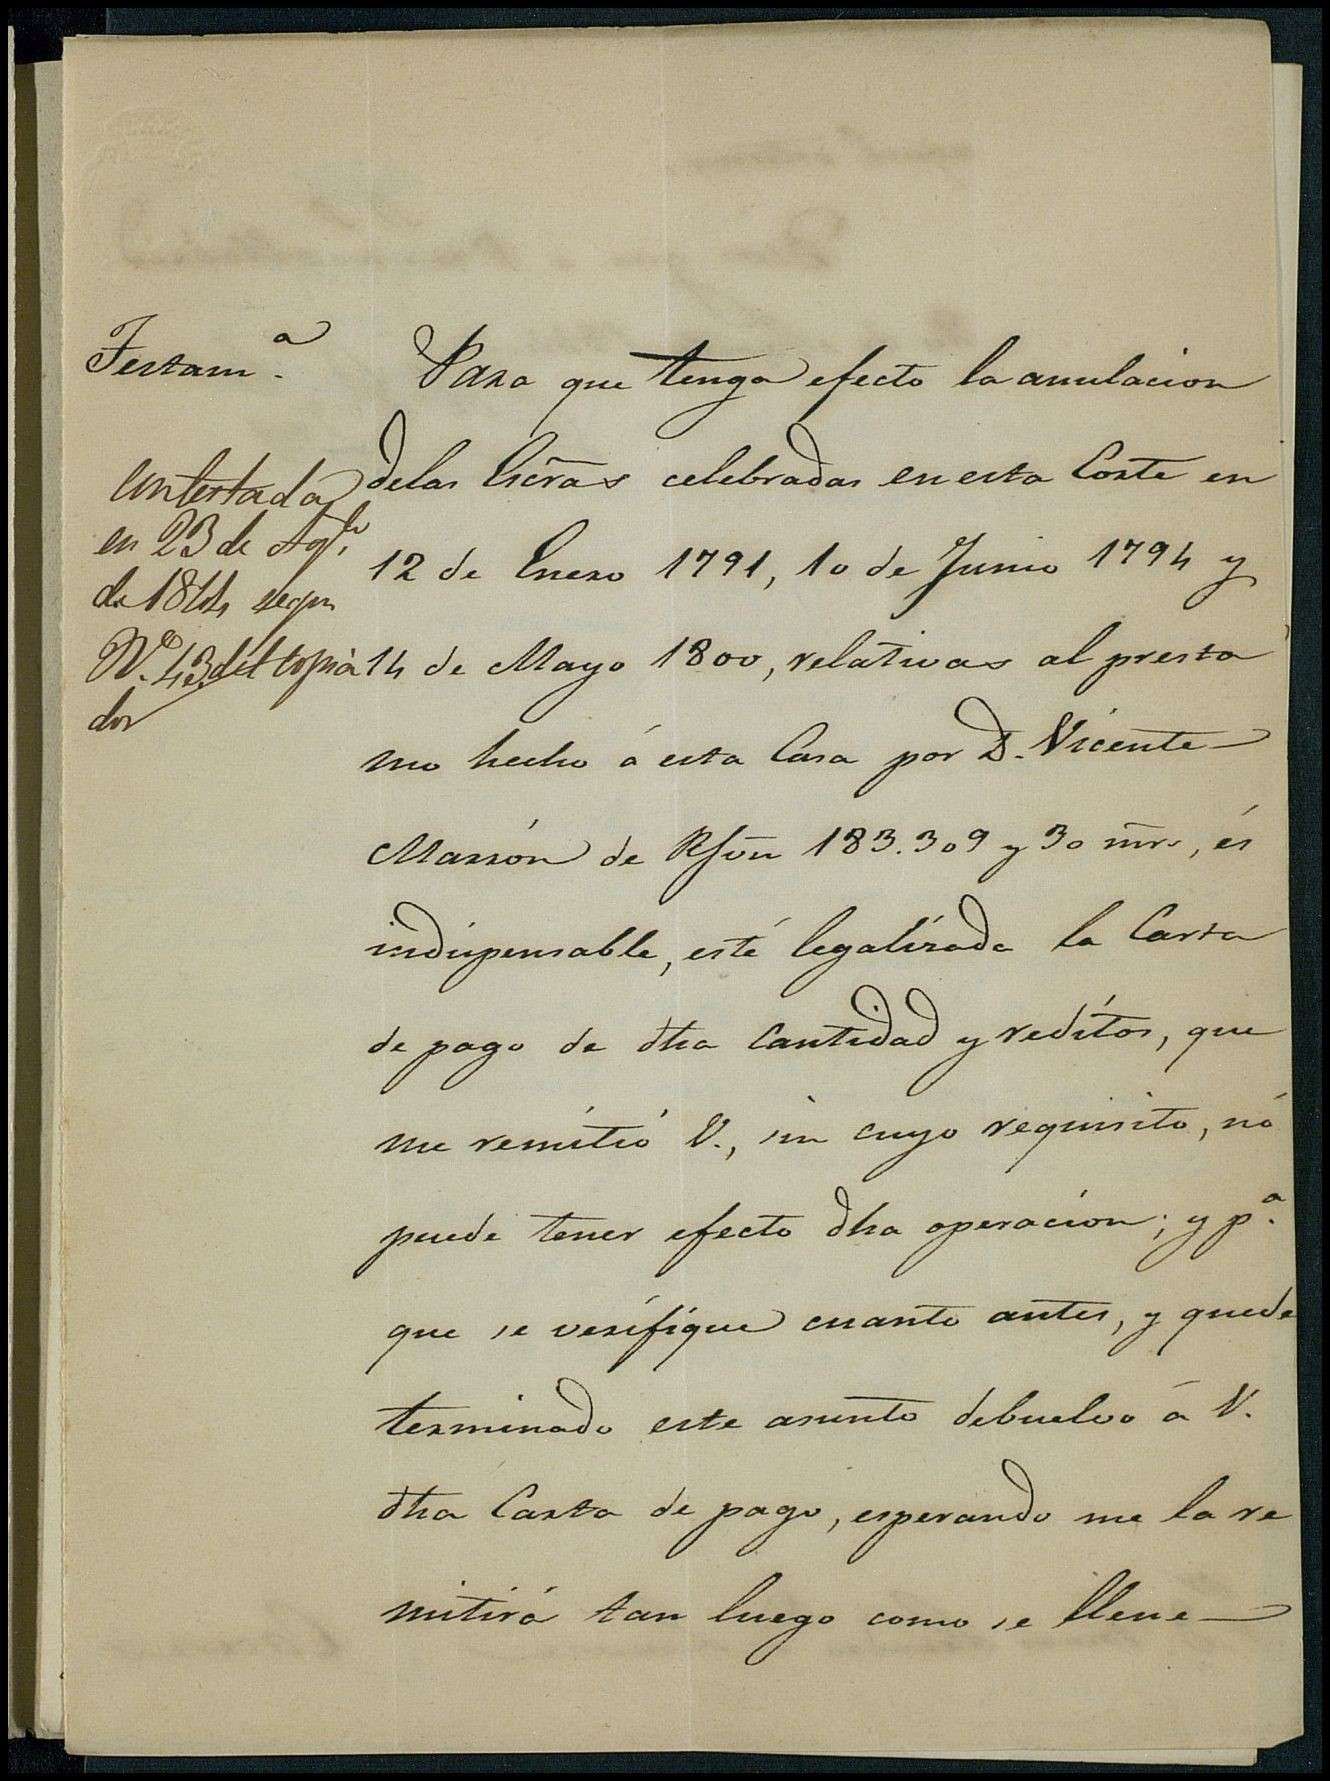 Testam.ª
Contestada
en 23 de Ag.to
de 1844 segun
Nº. 43 del copia
dor
Para que tenga efecto la anulacion
delas Escrãs celebradas en esta Corte en
12 de Enero 1791, 10 de Junio 1794 y
14 de Mayo 1800, relativas al presta
mo hecho á esta Casa por D. Vicente
Marrón de Rs vñ 183.309 y 30 mr̃s, és
indispensable, esté legalizada la Carta
de pago de dha Cantidad y reditos, que
me remitió V., sin cuyo requisito, nó
puede tener efecto dha operacion; y p.ª
que se verifique cuanto antes, y quede
terminado este asunto debuelvo á V.
dha Carta de pago, esperando me la re
mitirá tan luego como se llene